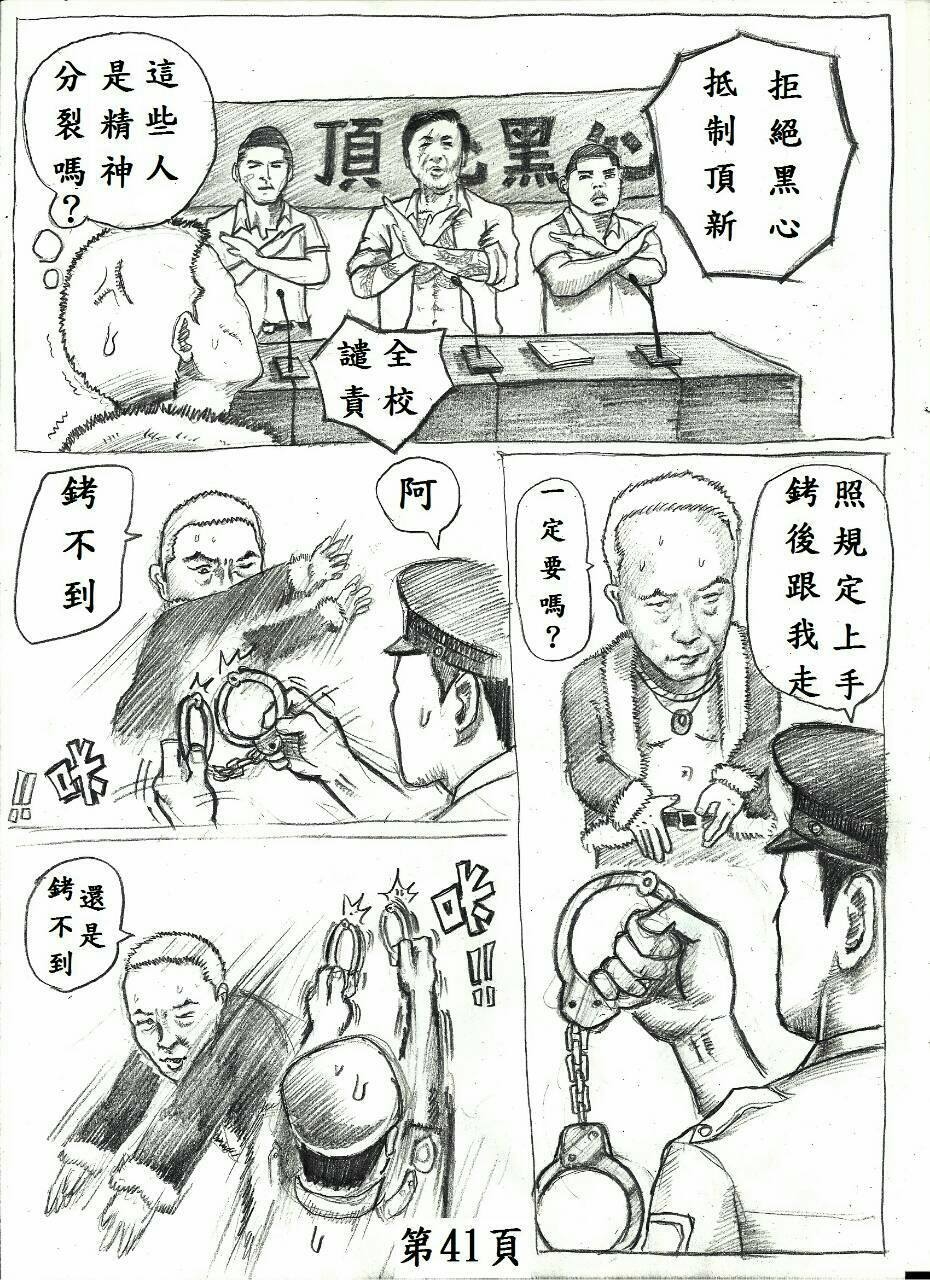 拒絕黑心
抵制頂新
頂 黑心
這些人
是精神
分裂嗎？
全校
譴責
照規定上手
銬後跟我走
一定要嗎？
阿
銬不到
咔!!
咔!!
還是
銬不到
第41頁